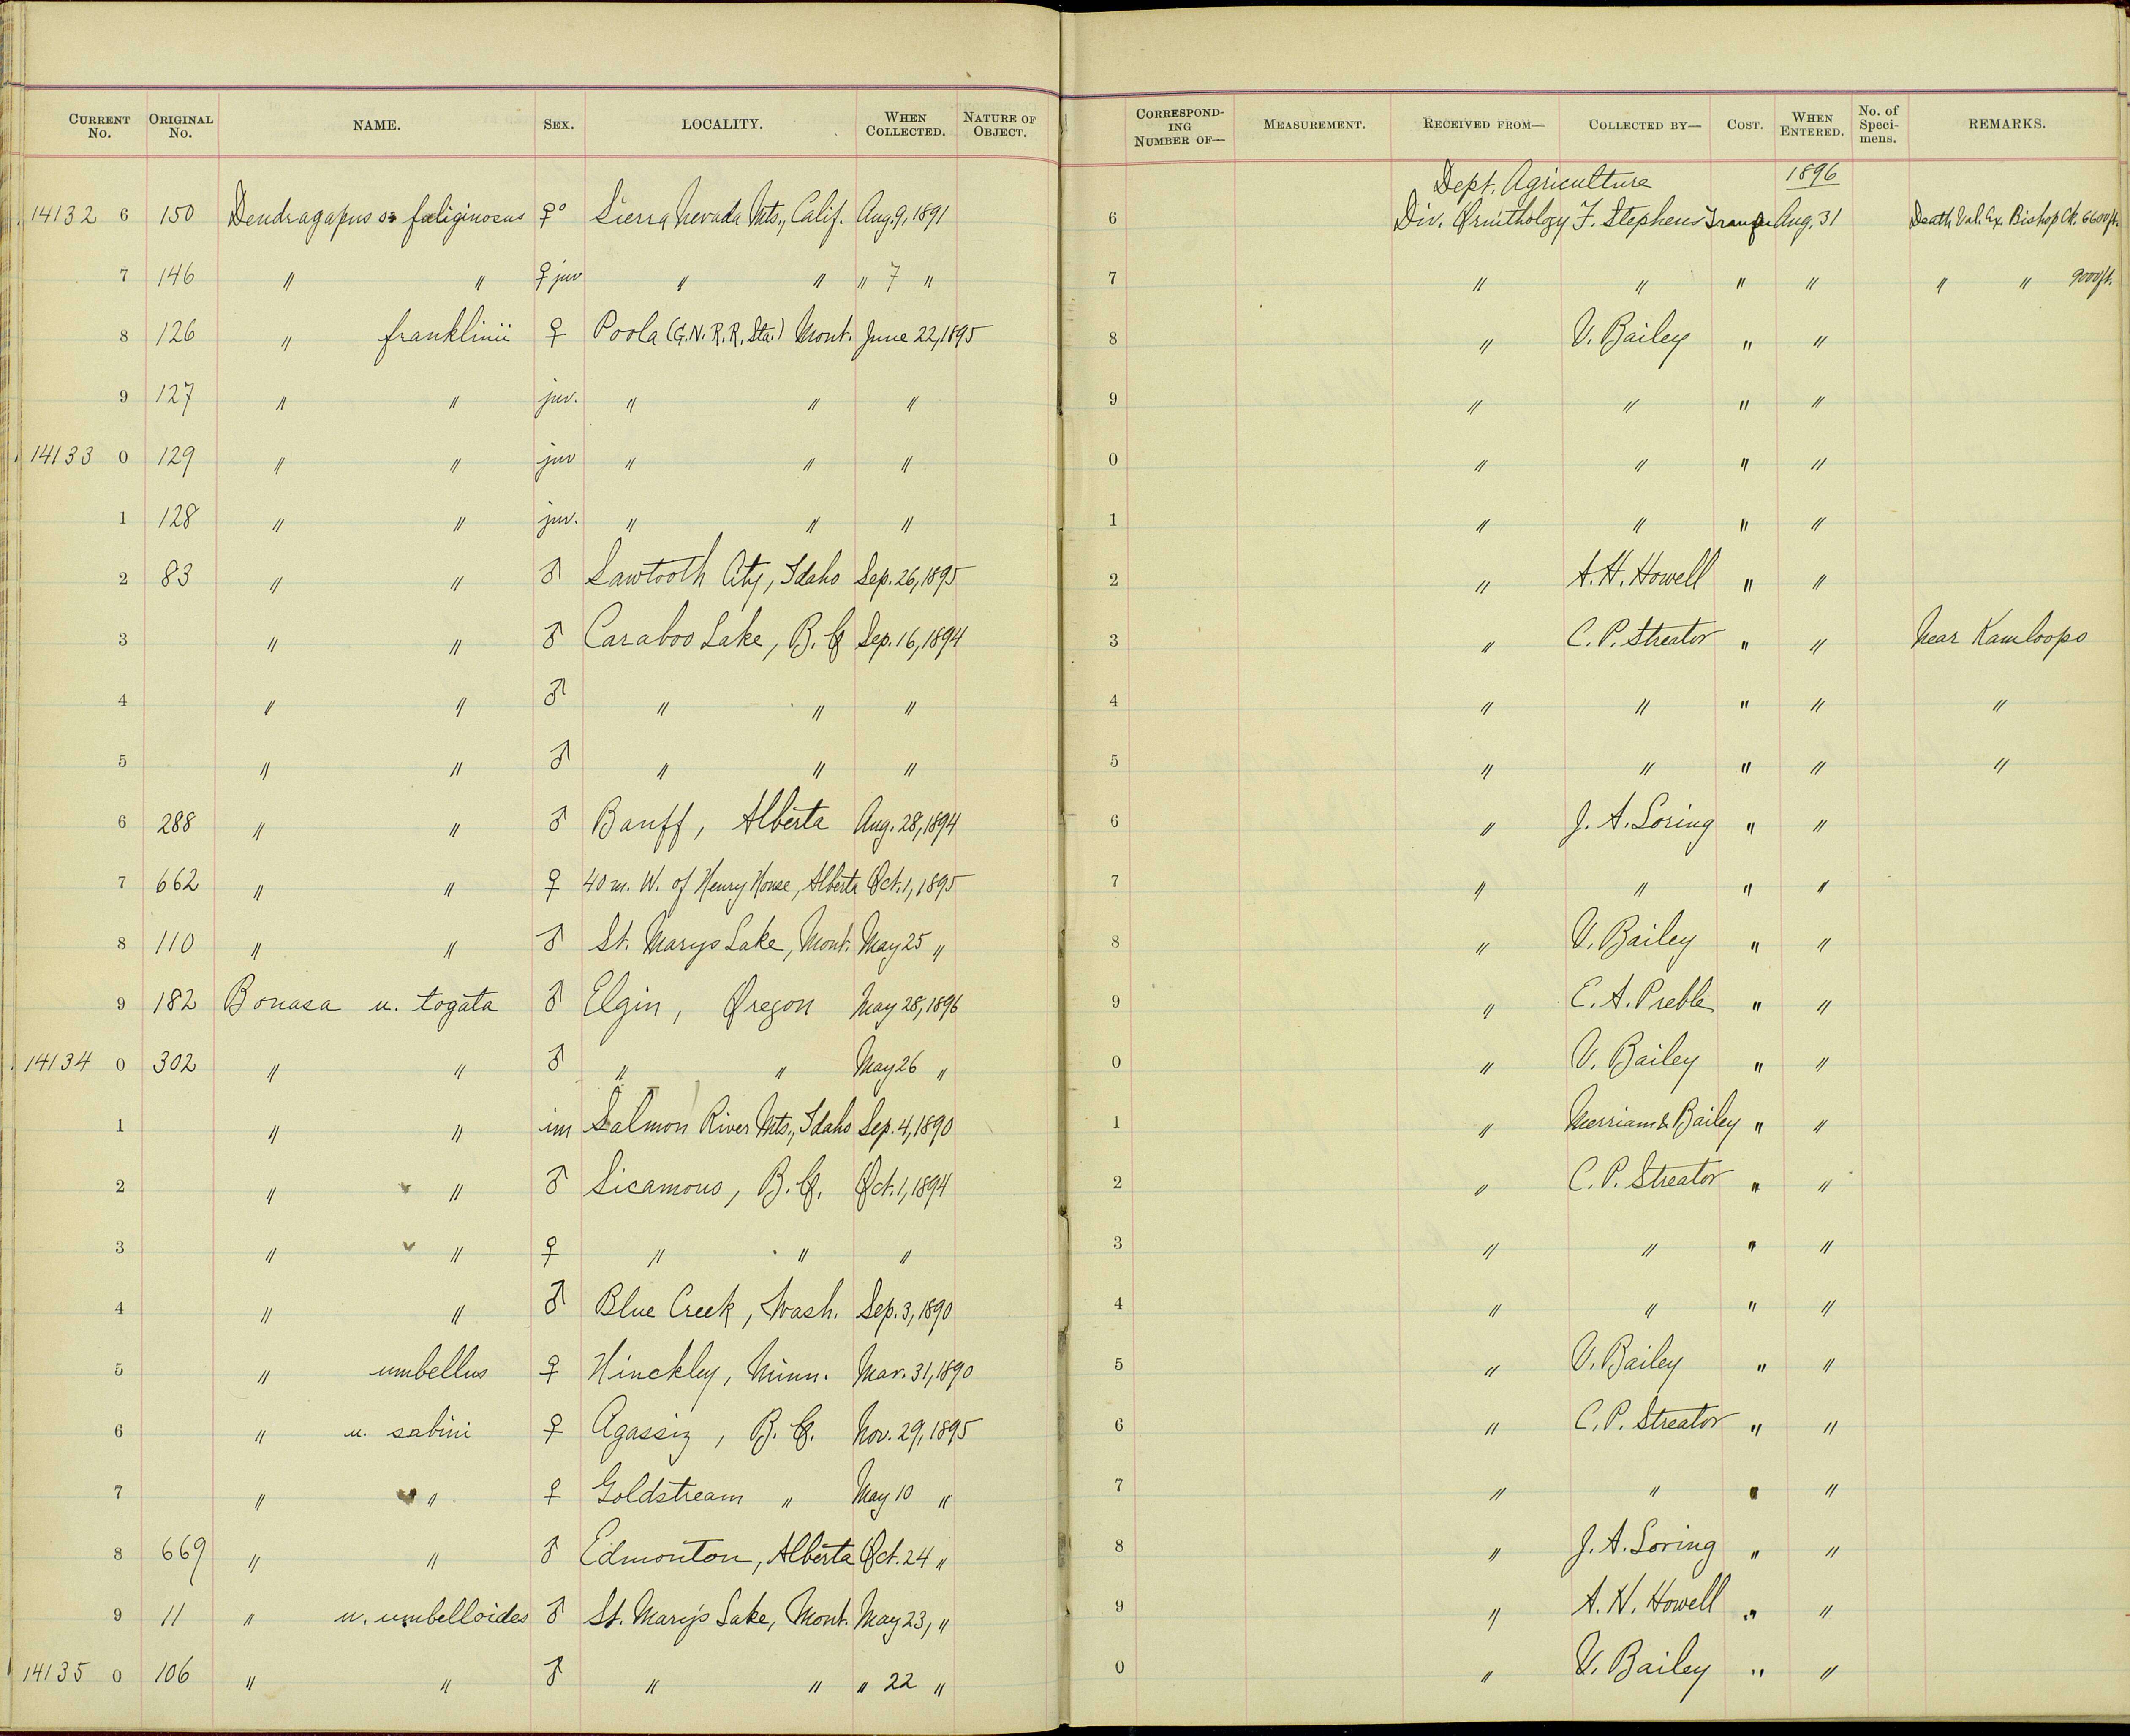 CURRENT No. ORIGINAL No. NAME. SEX. LOCALITY. WHEN COLLECTED. NATURE OF OBJECT. CORRESPONDING NUMBER OF— MEASUREMENT. RECEIVED FROM— COLLECTED BY— COST. WHEN ENTERED. No. of Specimens. REMARKS.
Dept. Agriculture 1896
14132 6 150 Dendragapus fuliginosus ♀ Sierra Nevada Mts., Calif. Aug. 9, 1891 6 Div. Ornithology F. Stephens Transfer Aug. 31 Death Val. Ex. Bishop Ck. 6600 ft.
7 146 " " ♀ juv " " " 7 " 7 " " " " " " 9000 ft.
8 126 " franklinii ♀ Poola (G.N.R.R. Sta.) Mont. June 22, 1895 8 " V. Bailey " "
9 127 " " juv. " " " 9 " " " "
14133 0 129 " " juv " " " 0 " " " "
1 128 " " juv. " " " 1 " " " "
2 83 " " ♂ Sawtooth City, Idaho Sep. 26, 1895 2 " A. H. Howell " "
3 " " ♂ Caraboo Lake, B. C Sep. 16, 1894 3 " C. P. Streator " " Near Kamloops
4 " " ♂ " " " 4 " " " " "
5 " " ♂ " " " 5 " " " " "
6 288 " " ♂ Banff, Alberta Aug. 28, 1894 6 " J. A. Loring " "
7 662 " " ♀ 40 m. W. of Henry House, Alberta Oct. 1, 1895 7 " " " "
8 110 " " ♂ St. Marys Lake, Mont. May 25 " 8 " V. Bailey " "
9 182 Bonasa u. togata ♂ Elgin, Oregon May 28, 1896 9 " E. A. Preble " "
14134 0 302 " " ♂ " " May 26 " 0 " V. Bailey " "
1 " " im Salmon River Mts., Idaho Sep. 4, 1890 1 " Merriam & Bailey " "
2 " " ♂ Sicamous, B. C. Oct. 1, 1894 2 " C. P. Streator " "
3 " " ♀ " " " 3 " " " "
4 " " ♂ Blue Creek, Wash. Sep. 3, 1890 4 " " " "
5 " umbellus ♀ Hinckley, Minn. Mar. 31, 1890 5 " V. Bailey " "
6 " u. sabini ♀ Agassiz, B. C. Nov. 29, 1895 6 " C. P. Streator " "
7 " " ♀ Goldstream " May 10 " 7 " " " "
8 669 " " ♂ Edmonton, Alberta Oct. 24 " 8 " J. A. Loring " "
9 11 " u. umbelloides ♂ St. Mary's Lake, Mont. May 23, " 9 " A. H. Howell " "
14135 0 106 " " ♂ " " " 22 " 0 " V. Bailey " "